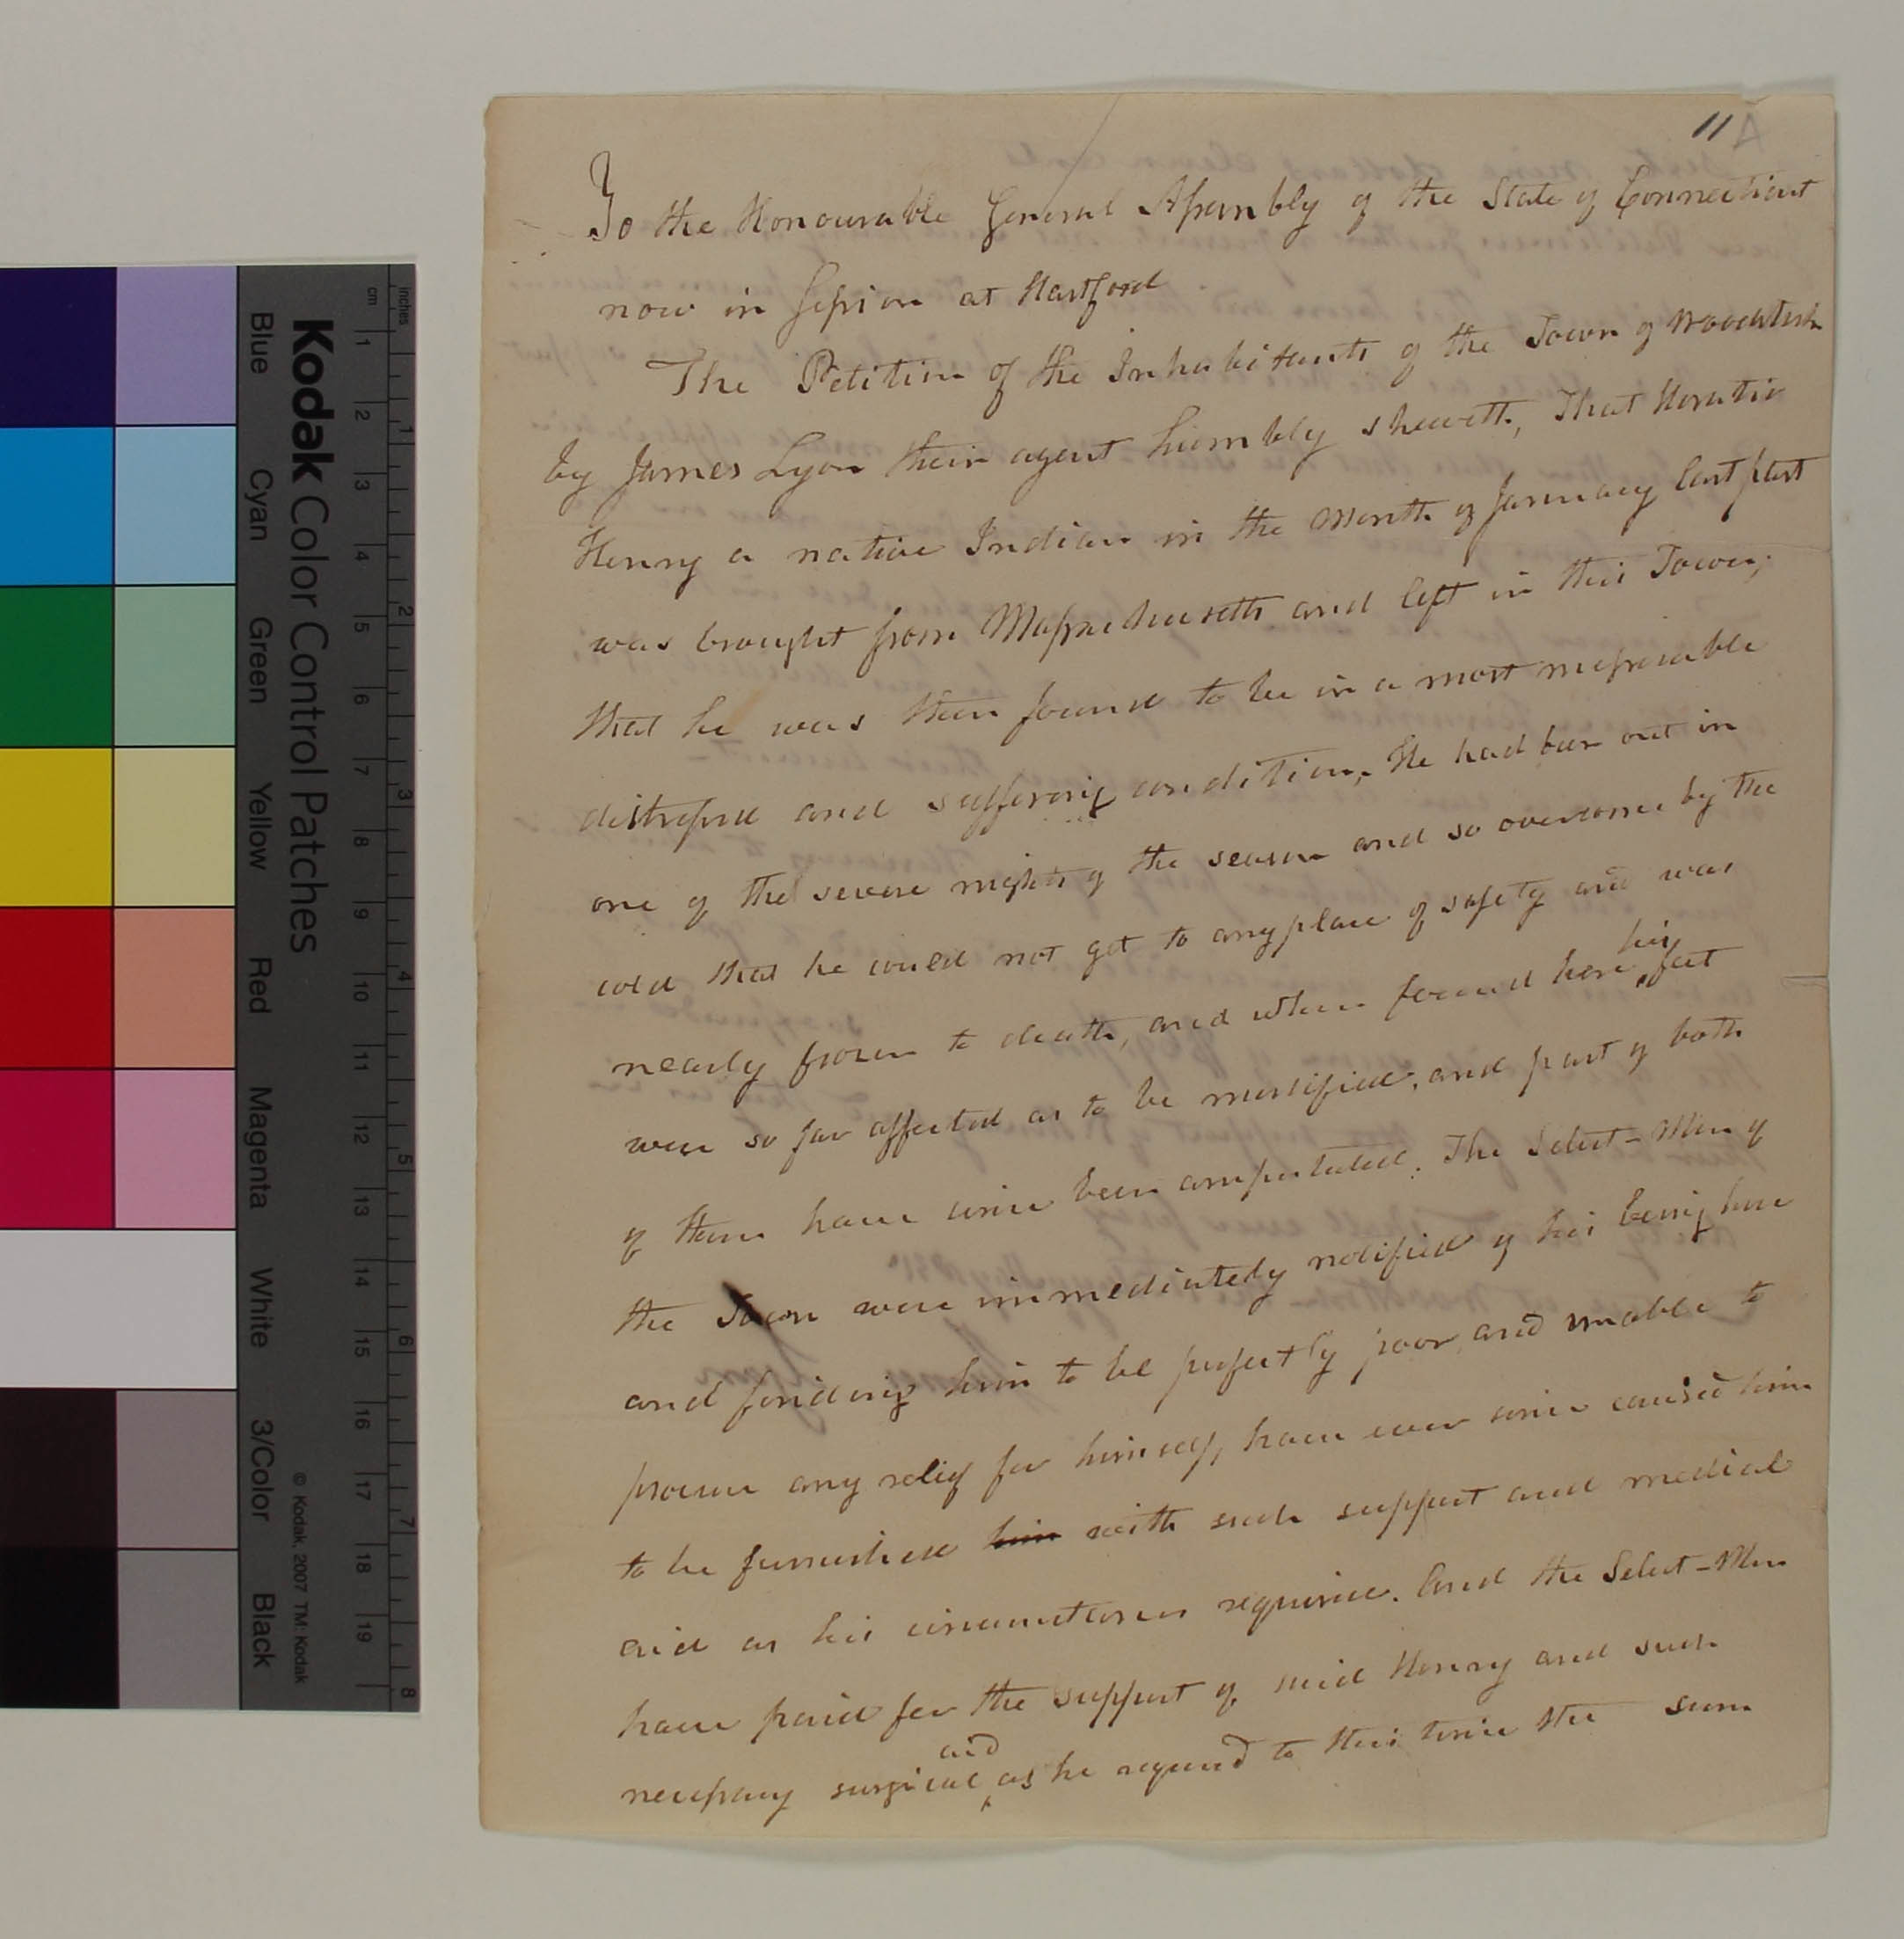 11
To the Honourable General Assembly of the State of Connecticut
now in Session at Hartford
The Petition of the Inhabitants of the Town of Woodstock
by James Lyon their agent humbly sheweth, That Horatio
Henry a native Indian in the Month of January last past
was brought from Massachusetts and left in this Town;
that he was then found to be in a most misserable
distressed and suffering condition, He had been out in
one of the severe nights of the season and so overcome by the
cold that he could not get to any place of safety and was
nearly frozen to death, and when found here his feet
were so far affected as to be mortified, and part of both
of them have since been amputated. The Select-Men of
the Town were immediately notified of his being here
and finding him to be perfectly poor, and unable to
procure any relief for himself, have ever since caused him
to be furnished him with such support and medical
aid as his circumstances required. And the Select-Men
have paid for the support of said Henry and such
necessary surgical aid as he required to this time the sum
Kodak Color Control Patches
Blue Cyan Green Yellow Red Magenta White 3/Color Black
© Kodak, 2007 TM: Kodak
cm 1 2 3 4 5 6 7 8 9 10 11 12 13 14 15 16 17 18 19
inches 1 2 3 4 5 6 7 8